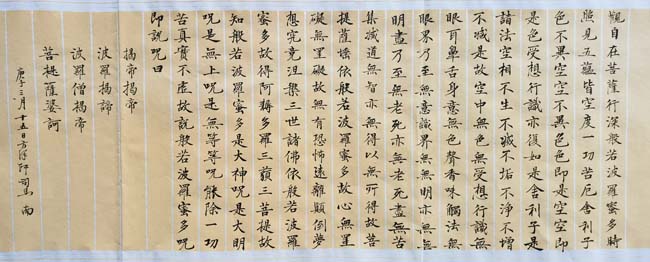 觀自在菩薩行深般若波羅蜜多時
照見五蘊皆空度一切苦厄舍利子
色不異空空不異色色即是空空即
是色受想行識亦復如是舍利子是
諸法空相不生不滅不垢不淨不增
不減是故空中無色無受想行識無
眼耳鼻舌身意無色聲香味觸法無
眼界乃至無意識界無無明亦無無
明盡乃至無老死亦無老死盡無苦
集滅道無智亦無得以無所得故菩
提薩埵依般若波羅蜜多故心無罣
礙無罣礙故無有恐怖遠離顛倒夢
想究竟涅槃三世諸佛依般若波羅
蜜多故得阿耨多羅三藐三菩提故
知般若波羅蜜多是大神呪是大明
呪是無上呪是無等等呪能除一切
苦真實不虛故說般若波羅蜜多呪
即說呪曰
揭帝揭帝
波羅揭諦
波羅僧揭帝
菩提薩婆訶
庚子三月十五日